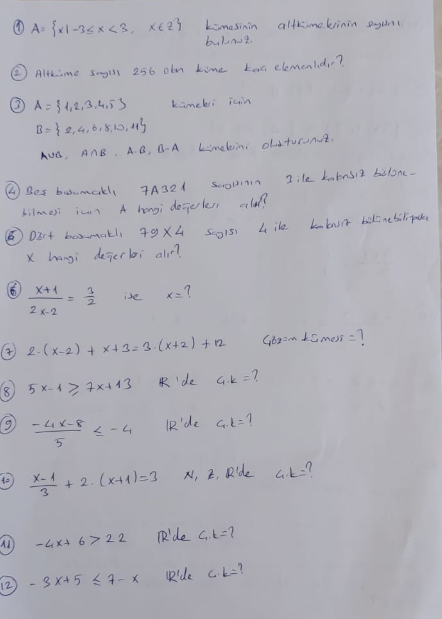 ① A = {x| -3 ≤ x < 3, x ∈ Z} kümesinin altkümelerinin sayısını
bulunuz.
② Altküme sayısı 256 olan küme kaç elemanlıdır?
③ A = {1,2,3,4,5} kümeleri için
B = {2,4,6,8,10,11}
A∪B, A∩B, A-B, B-A kümelerini oluşturunuz.
④ Beş basamaklı 7A321 sayısının 3 ile kalansız bölüne-
bilmesi için A hangi değerleri alır?
⑤ Dört basamaklı 79X4 sayısı 4 ile kalansız bölünebiliyorsa
X hangi değerleri alır?
⑥ (x+1)/(2x-2) = 3/2 ise x=?
⑦ 2.(x-2) + x+3 = 3.(x+2) + 12 Çözüm kümesi = ?
⑧ 5x-1 ≥ 7x+13 R'de Ç.k=?
⑨ (-4x-8)/5 ≤ -4 R'de Ç.k=?
⑩ (x-1)/3 + 2.(x+1)=3 N, Z, R'de Ç.k=?
⑪ -4x+6 > 22 R'de Ç.k=?
⑫ -3x+5 ≤ 7-x R'de Ç.k=?